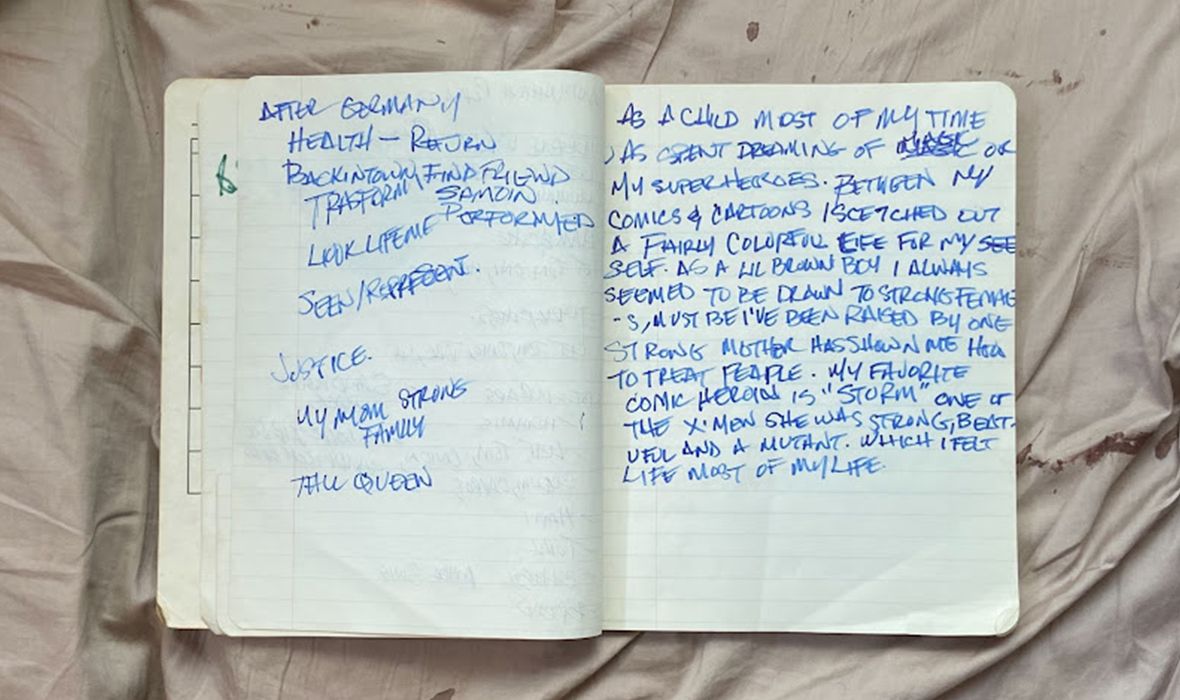 AFTER GERMANY
HEALTH - RETURN
BACK IN TOWN, FIND FRIEND
TRASFORM SAMOIN
LOOK LIFE ME PORFORMED
SEEN/REPRESENT.
JUSTICE.
MY MOM STRONG
FAMILY
TALL QUEEN
AS A CHILD MOST OF MY TIME
WAS SPENT DREAMING OF MAGIC OR
MY SUPERHEROES. BETWEEN MY
COMICS & CARTOONS I SCETCHED OUT
A FAIRLY COLORFUL LIFE FOR MY SEE
SELF. AS A LIL BROWN BOY I ALWAYS
SEEMED TO BE DRAWN TO STRONG FEMALE
-S, MUST BE I'VE BEEN RAISED BY ONE
STRONG MOTHER HAS SHOWN ME HOW
TO TREAT PEAPLE. MY FAVORITE
COMIC HEROIN IS "STORM" ONE OF
THE X-MEN SHE WAS STRONG, BEAT-
UFUL AND A MUTANT. WHICH I FELT
LIFE MOST OF MY LIFE.